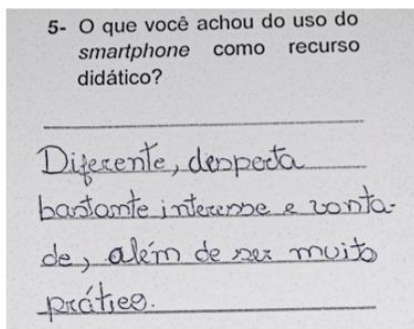 5- O que você achou do uso do
smartphone como recurso
didático?
Diferente, desperta
bastante interesse e vonta-
de, além de ser muito
prático.